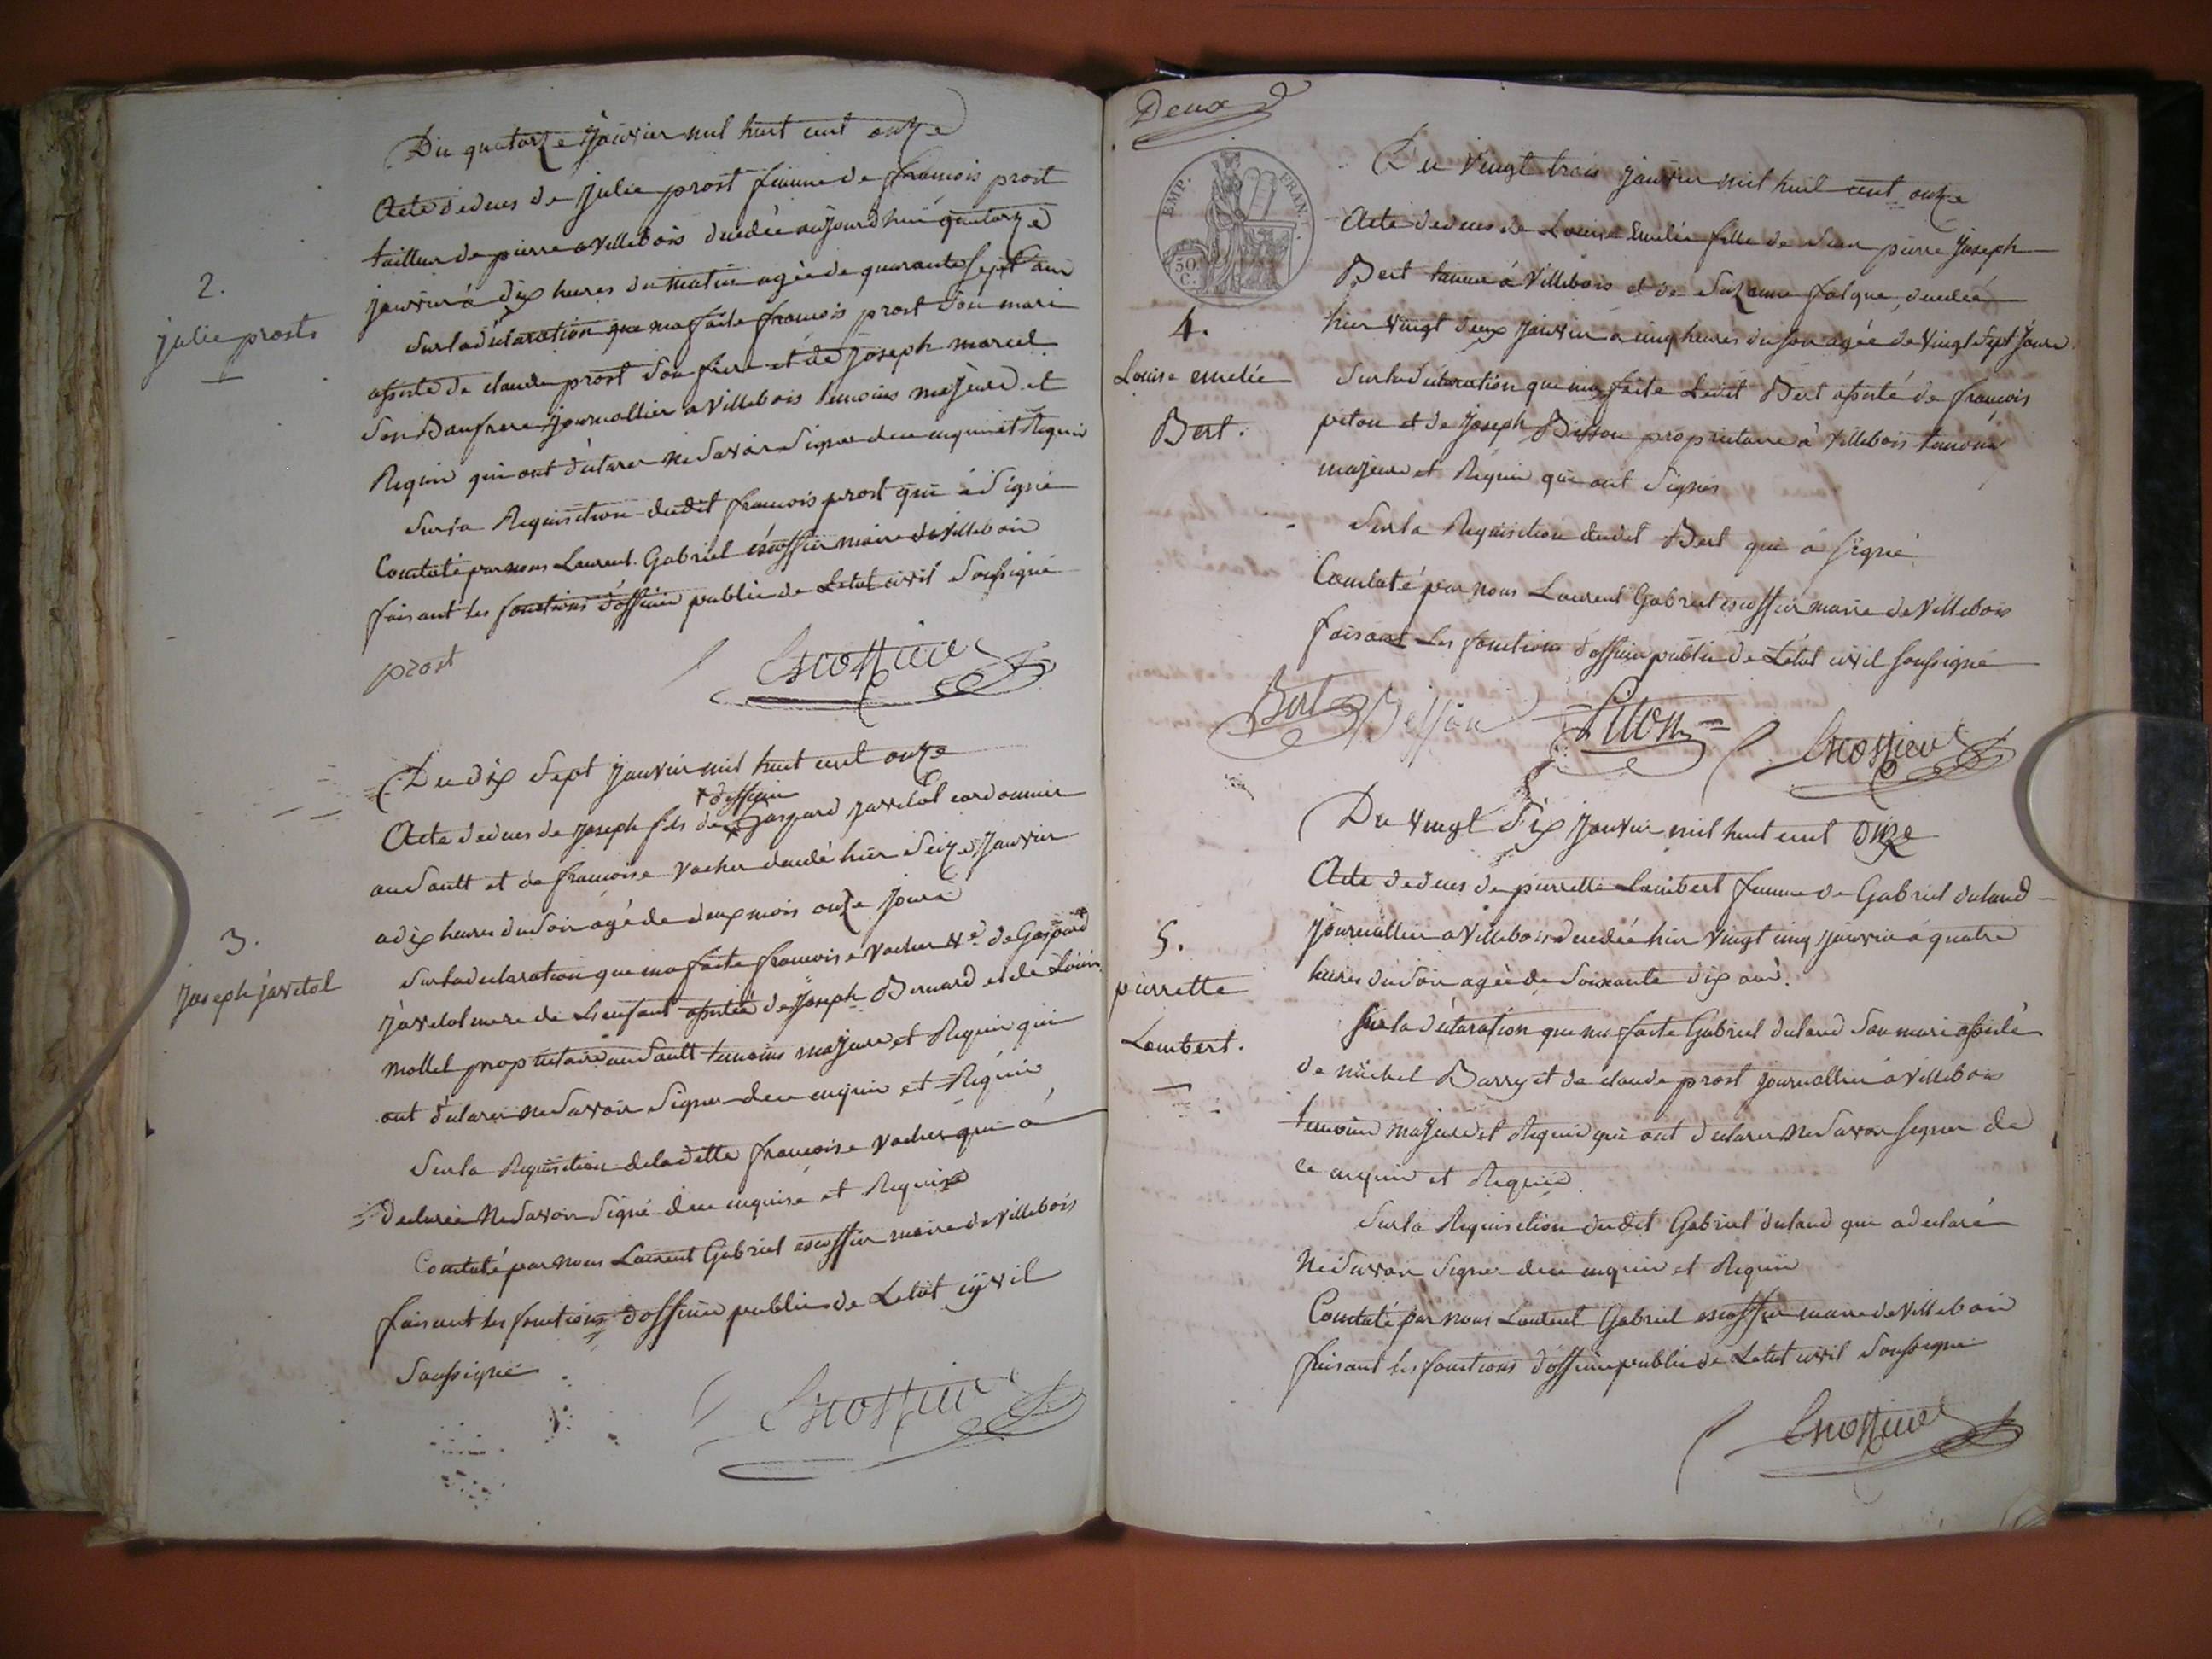 Du quatorze janvier mil huit cent onze
Acte de deces de julie prost femme de francois prost
tailleur de pierre a villebois decedée aujourd'hui quatorze
janvier à dix heures du matin agée de quarante sept ans
2.
julie prost
Sur la declaration que ma faite francois prost Son mari
assisté de claude prost Son frere et de Joseph marcel
Son Baufrere journallier a villebois temoins majeurs et
Requis qui ont declarer ne Savoir Signer de ce enquis et Requis
Sur la Requisition dudit francois prost qui à Signé
Constaté par nous Laurent Gabriel escoffier maire de villebois
faisant les fonctions d'officier public de Letat civil Soussigné
prost Escoffier
Du dix Sept janvier mil huit cent onze
+ deffun
Acte de deces de joseph fils de + gaspard javelot cordonnier
au Sault et de francoise vacher decedé hier Seize janvier
a dix heures du Soir agé de deux mois onze jours
3.
joseph javelot
Sur la declaration que ma faite francoise vacher Ve. de Gaspard
javelot mere de L'enfant assistée de joseph Bernard et de Louis
mollet propriétaire au Sault temoins majeurs et Requis qui
ont declarer ne Savoir Signer de ce enquis et Requis
Sur la Requisition de la ditte francoise vacher qui a
declarée ne Savoir Signé de ce enquise et Requise
Constaté par nous Laurent Gabriel escoffier maire de villebois
faisant les fonctions d'officier public de Letat cyvil
Soussigné
Escoffier
Deux
EMP. FRAN.
50 C.
Du vingt trois janvier mil huit cent onze
Acte de deces de Louise Emelie fille de Jean pierre joseph
Bert tanneur à villebois et de Suzanne falque, decedée
hier vingt deux janvier a cinq heures du soir agée de vingt Sept jours
4.
Louise emelie
Bert.
Sur la declaration que ma faite Ledit Bert assisté de francois
pitou et de joseph Bisson propriétaire à villebois temoins
majeurs et Requis qui ont Signés
Sur la Requisition dudit Bert qui a Signé
Constaté par nous Laurent Gabriel escoffier maire de villebois
faisant Les fonctions d'officier public de L'état civil soussigné
Bert Besson Piton Escoffier
Du vingt Six janvier mil huit cent onze
Acte de deces de pierrette Lambert femme de Gabriel duland
journallier a villebois decedée hier vingt cinq janvier a quatre
heures du Soir agée de Soixante dix ans.
5.
pierrette
Lambert.
Sur la declaration que ma faite Gabriel duland Son mari assisté
de michel Barry et de claude prost journallier à villebois
temoins majeurs et Requis qui ont declarer ne Savoir signer de
ce enquis et Requis
Sur la Requisition dudit Gabriel duland qui a declaré
Ne Savoir Signer de ce enquis et Requis
Constaté par nous Laurent Gabriel escoffier maire de villebois
faisant les fonctions d'officier public de Letat civil Soussigné
Escoffier